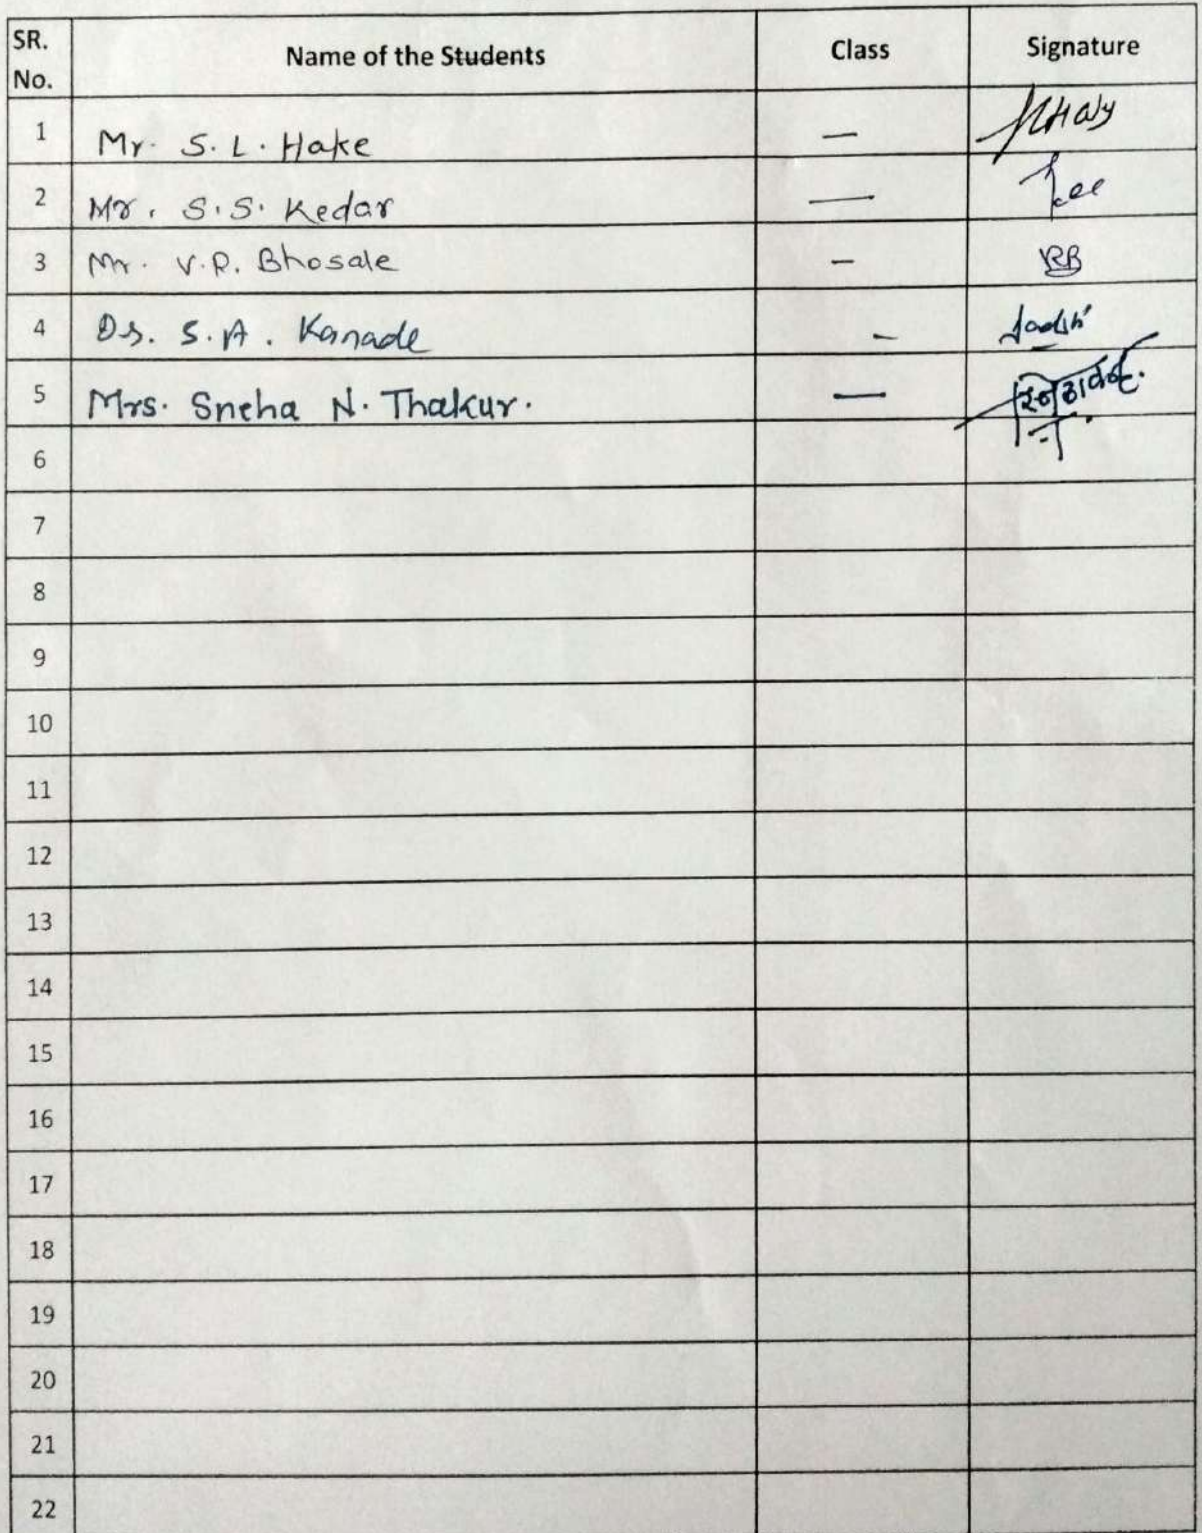 SR. No. Name of the Students Class Signature
1 Mr. S. L. Hake —
2 Mr. S. S. Kedar —
3 Mr. V. R. Bhosale —
4 Dr. S. A. Kanade -
5 Mrs. Sneha N. Thakur. —
6
7
8
9
10
11
12
13
14
15
16
17
18
19
20
21
22